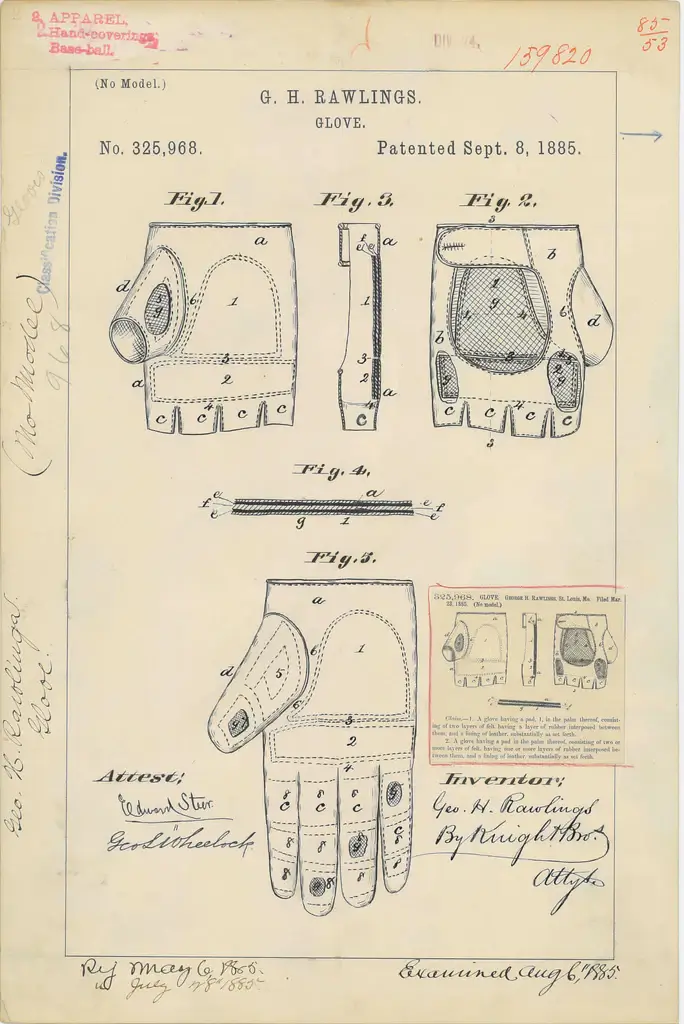 2 APPAREL,
Hand-coverings,
Base-ball.
DIV.
159820
85
53
(No Model.)
G. H. RAWLINGS.
GLOVE.
No. 325,968.
Patented Sept. 8, 1885.
Classification Division.
Gloves
(No Model)
968
Geo. H. Rawlings.
Glove.
Fig. 1.
Fig. 3.
Fig. 2.
a
d
5
g
6
1
3
a
2
4
c c c c
f
e e
a
1
3
2
4
a
c
3
b
1
g
4 4
6
d
b
3
g
g
c c c c
3
Fig. 4.
e
f
e
a
e
f
e
g
1
Fig. 5.
a
d
6
1
5
g
6
3
2
4
8 8 8 g
c c c c
8 8 g 8
8 g 8 8
325,968. GLOVE. GEORGE H. RAWLINGS, St. Louis, Mo. Filed Mar.
23, 1885. (No model.)
Claim.—1. A glove having a pad, 1, in the palm thereof, consist-
ing of two layers of felt, having a layer of rubber interposed between
them, and a lining of leather, substantially as set forth.
2. A glove having a pad in the palm thereof, consisting of two or
more layers of felt, having one or more layers of rubber interposed be-
tween them, and a lining of leather, substantially as set forth.
Attest;
Geo L Wheelock
Inventor;
Geo. H. Rawlings
By Knight Bros.
Attys
Rej May 6, 1885.
" July 28" 1885
Examined Aug 6" 1885.